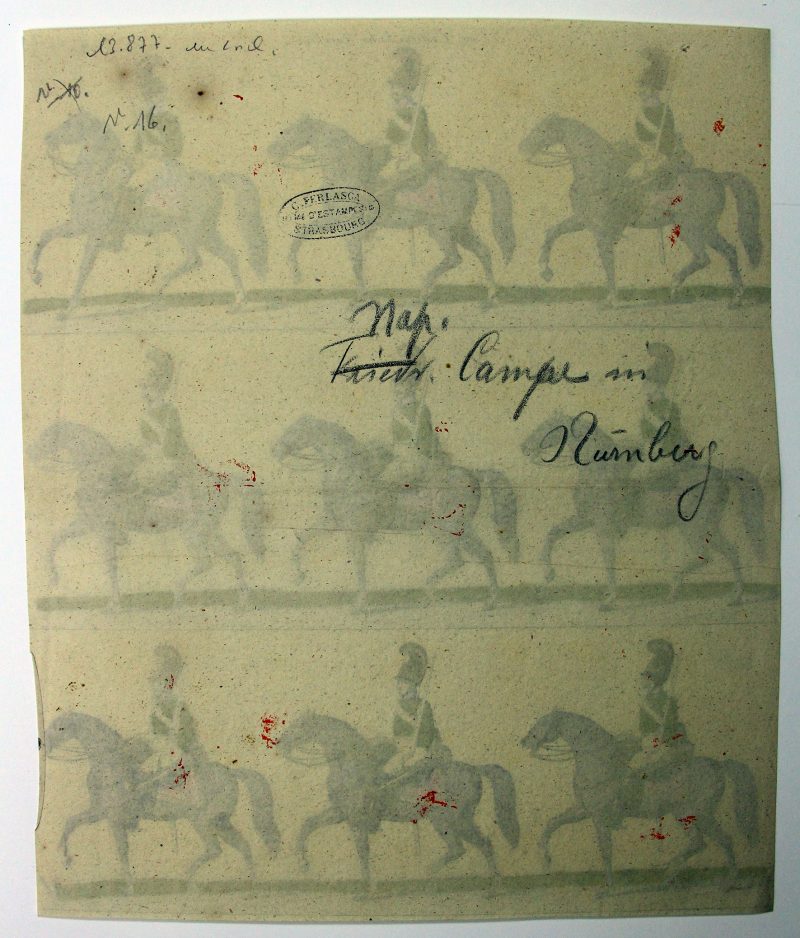 13.877-
N° 16.
C. FERLASCA
D'ESTAMPES
STRASBOURG
Nap.
Friedr. Campe in
Nürnberg